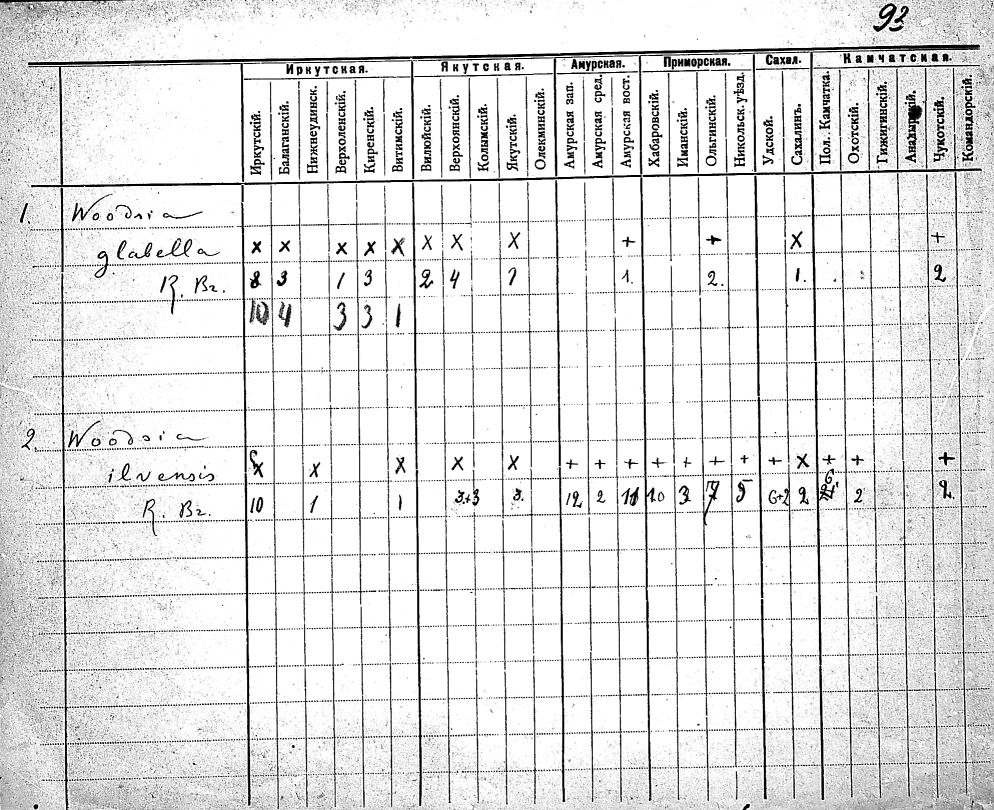 93
Иркутская. Якутская. Амурская. Приморская. Сахал. Камчатская.
Иркутскій. Балаганскій. Нижнеудинск. Верхоленскій. Киренскій. Витимскій. Вилюйскій. Верхоянскій. Колымскій. Якутскій. Олекминскій. Амурская зап. Амурская сред. Амурская вост. Хабаровскій. Иманскій. Ольгинскій. Никольск. уѣзд. Удской. Сахалинъ. Пол. Камчатка. Охотскій. Гижигинскій. Анадырскій. Чукотскій. Командорскій.
1. Woodsia
glabella x x x x x x x x + + x +
R. Br. 8 3 1 3 2 4 1. 2. 1. 2
10 4 3 3 1
2. Woodsia
ilvensis x x x x x + + + + + + + + x + + +
R. Br. 10 1 1 3+3 3. 12 2 11 10 3 7 5 6+2 2 2 2.